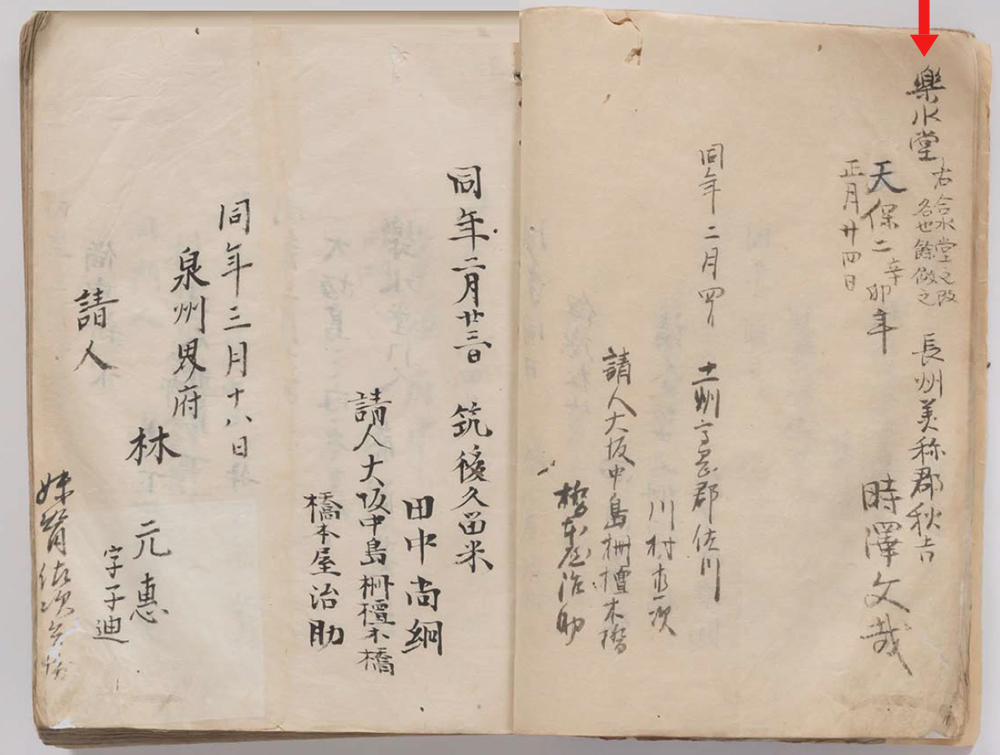 樂水堂
右合水堂之改
名也餘倣之
長州美祢郡秋吉
時澤文哉
天保二辛卯年
正月廿四日
同年二月四日
土州高岡郡佐川
川村
請人大坂中島栴檀木橋
橋本屋治助
同年二月廿三日 筑後久留米
田中尚綱
請人大坂中島栴檀木橋
橋本屋治助
同年三月十八日
泉州堺府
林 元惠
字子迪
請人